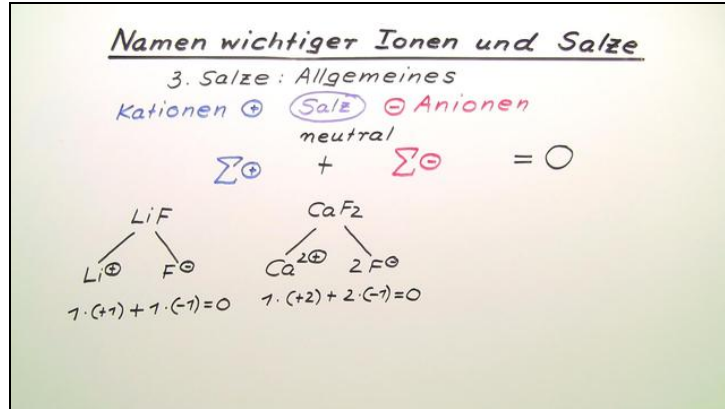 Namen wichtiger Ionen und Salze
3. Salze : Allgemeines
Kationen ⊕ Salz ⊖ Anionen
neutral
∑⊕ + ∑⊖ = 0
LiF CaF₂
Li⊕ F⊖ Ca²⊕ 2F⊖
1·(+1) + 1·(-1) = 0 1·(+2) + 2·(-1) = 0